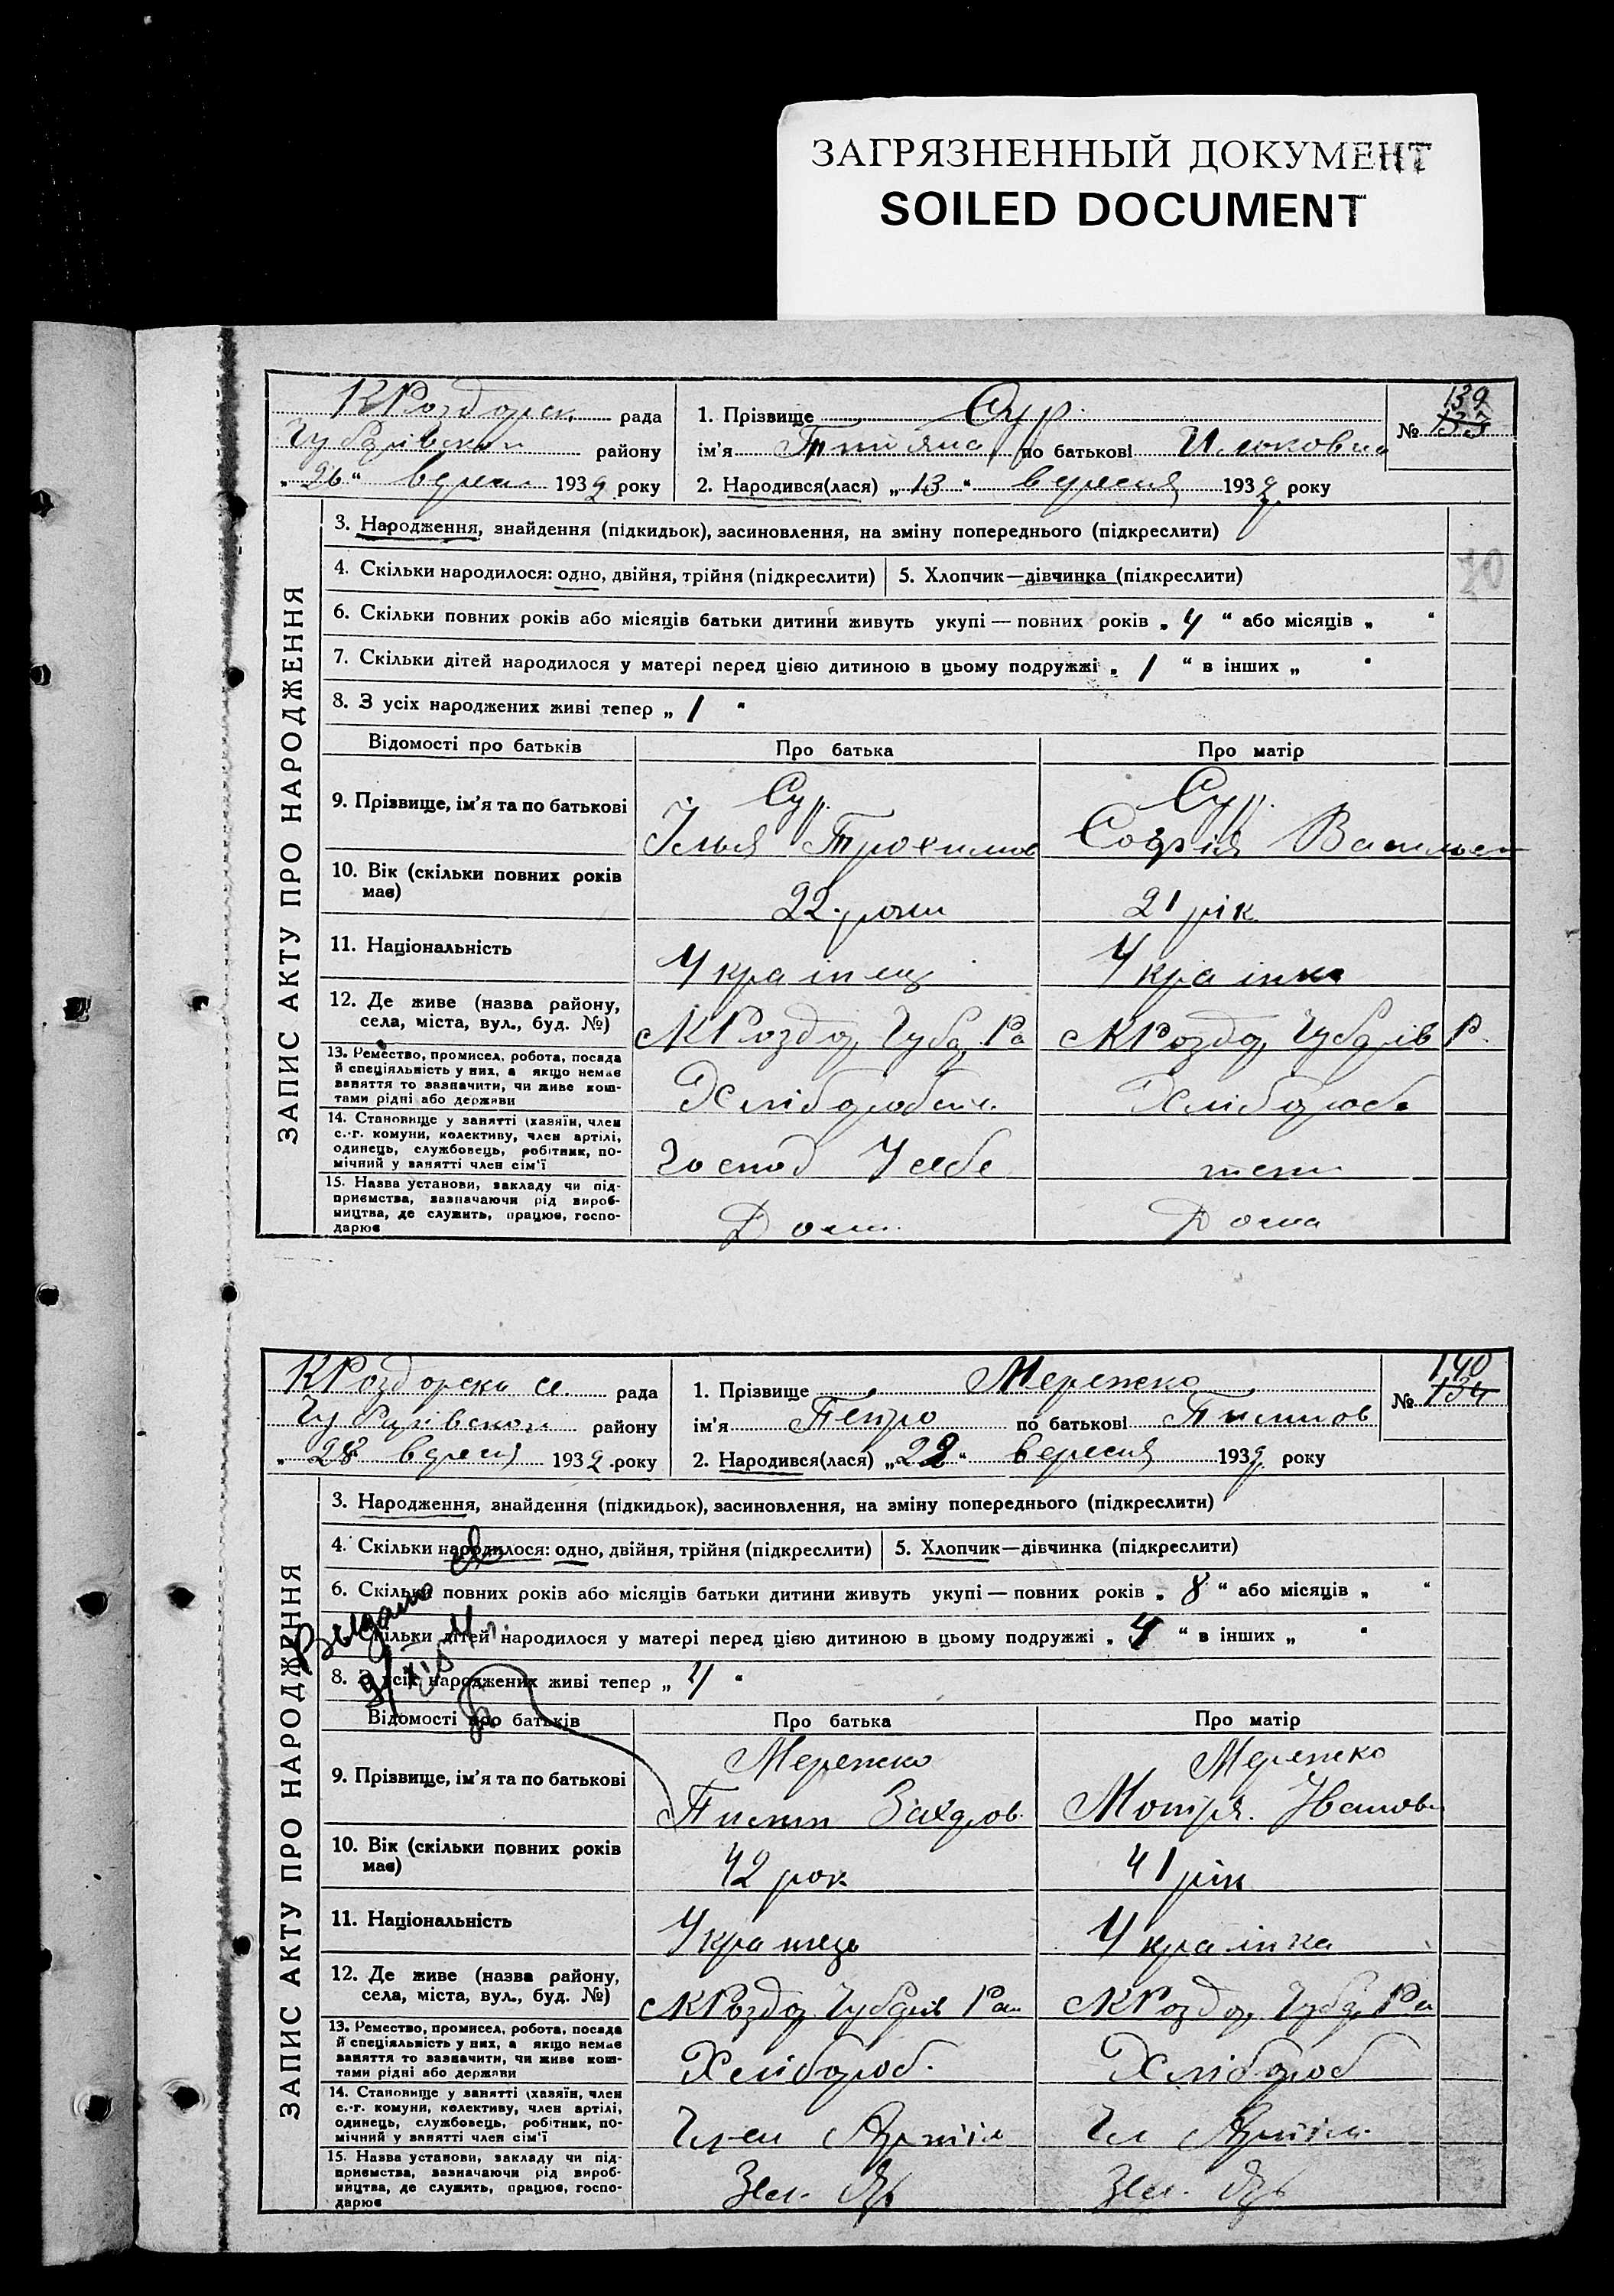 ЗАГРЯЗНЕННЫЙ ДОКУМЕНТ
SOILED DOCUMENT
ЗАПИС АКТУ ПРО НАРОДЖЕННЯ
КРоздорск. рада
Чубарівском району
„26“ верес 1932 року
1. Прізвище Сур
ім'я Титяна по батькові Ильковна
2. Народився(лася) „13“ вересня 1932 року
№ 139
133
3. Народження, знайдення (підкидьок), засиновлення, на зміну попереднього (підкреслити)
4. Скільки народилося: одно, двійня, трійня (підкреслити)
5. Хлопчик—дівчинка (підкреслити)
70
6. Скільки повних років або місяців батьки дитини живуть укупі — повних років „ 4 “ або місяців „ “
7. Скільки дітей народилося у матері перед цією дитиною в цьому подружжі „ 1 “ в інших „ “
8. З усіх народжених живі тепер „ 1 “
Відомості про батьків Про батька Про матір
9. Прізвище, ім'я та по батькові
Сур. Сур.
Ілья Трохимов Софія Васильев
10. Вік (скільки повних років має)
22 роки 21 рік
11. Національність
Українец Українка
12. Де живе (назва району, села, міста, вул., буд. №)
КРоздор Чубар Ра КРоздор Чубарів Р.
13. Ремество, промисел, робота, посада й спеціяльність у них, а якщо немає заняття то зазначити, чи живе коштами рідні або держави
Хлібороб Хлібороб
14. Становище у занятті (хазяїн, член с.-г. комуни, колективу, член артілі, одинець, службовець, робітник, помічний у занятті член сім'ї
Господ У себе
15. Назва установи, закладу чи підприємства, зазначаючи рід виробництва, де служить, працює, господарює
Дома Дома
ЗАПИС АКТУ ПРО НАРОДЖЕННЯ
КРоздорска с. рада
Чубарівском району
„28 вересня 1932 року
1. Прізвище Мережко
ім'я Петро по батькові Пимипов
2. Народився(лася) „22“ вересня 1932 року
№ 140
134
3. Народження, знайдення (підкидьок), засиновлення, на зміну попереднього (підкреслити)
4. Скільки народилося: одно, двійня, трійня (підкреслити)
5. Хлопчик—дівчинка (підкреслити)
6. Скільки повних років або місяців батьки дитини живуть укупі — повних років „ 8 “ або місяців „ “
Выдано
Скільки дітей народилося у матері перед цією дитиною в цьому подружжі „ 4 “ в інших „ “
8. З усіх народжених живі тепер „ 4 “
Відомості про батьків Про батька Про матір
9. Прізвище, ім'я та по батькові
Мережко Мережко
Захаров Мотря Иванов
10. Вік (скільки повних років має)
42 рок 41 рік
11. Національність
Українець Українка
12. Де живе (назва району, села, міста, вул., буд. №)
КРоздор Чубарів Рай КРоздор Чубар Ра
13. Ремество, промисел, робота, посада й спеціяльність у них, а якщо немає заняття то зазначити, чи живе коштами рідні або держави
Хлібороб. Хлібороб
14. Становище у занятті (хазяїн, член с.-г. комуни, колективу, член артілі, одинець, службовець, робітник, помічний у занятті член сім'ї
Член Артіл Чл Артіл.
15. Назва установи, закладу чи підприємства, зазначаючи рід виробництва, де служить, працює, господарює